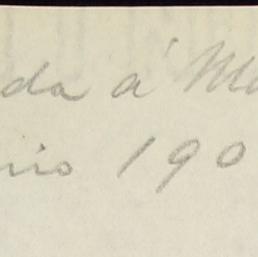 da á M
nio 190